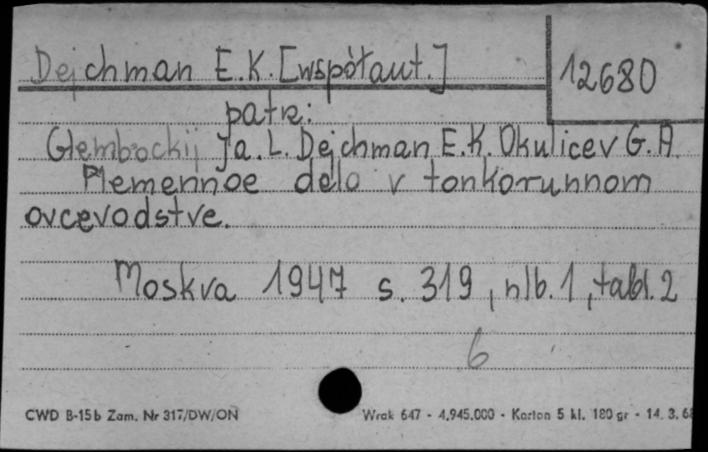 Dejchman E.K. [współaut.]
12680
patrz:
Glembockij Ja. L. Dejchman E.K. Okulicev G.A.
Plemennoe delo v tonkorunnom
ovcevodstve.
Moskva 1947 s. 319, nlb. 1, tabl. 2
6
CWD B-15b Zam. Nr 317/DW/ON
Wrak 647 - 4.945.000 - Karton 5 kl. 180 gr - 14. 3. 68